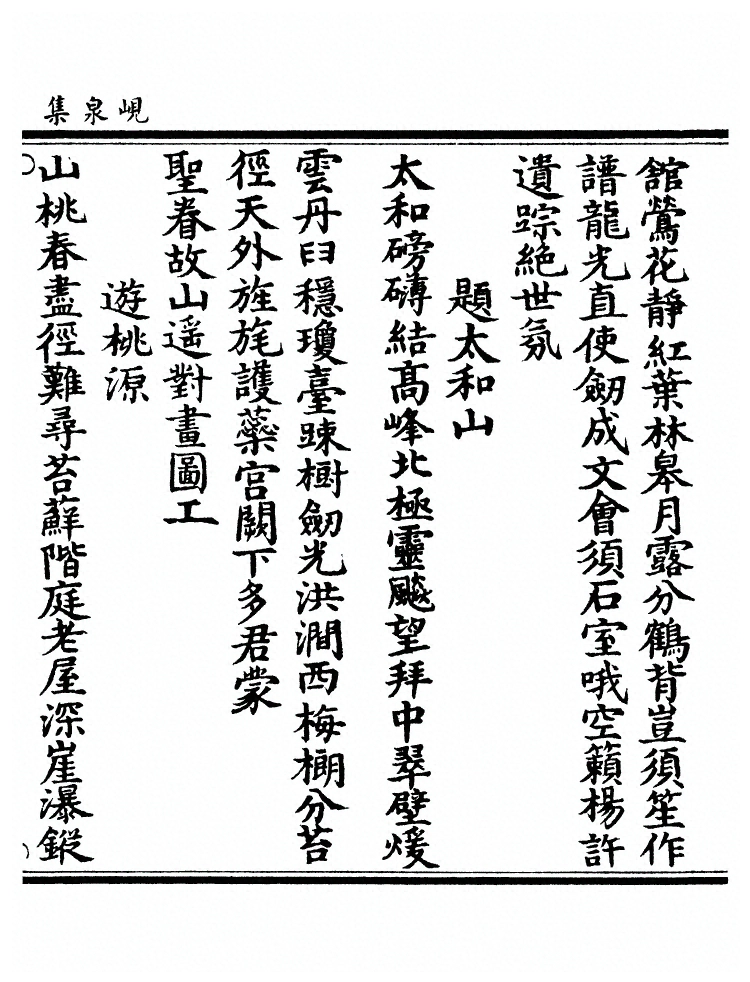 峴泉集
館鶯花靜紅葉林皋月露分鶴背豈須笙作
譜龍光直使劒成文會須石室哦空籟楊許
遺踪絕世氛
題太和山
太和磅礴結髙峰北極靈飈望拜中翠壁煖
雲丹臼穩瓊臺踈樹劒光洪澗西梅榔分苔
徑天外旌旄護蘂宫闕下多君蒙
聖眷故山遥對畫圖工
遊桃源
山桃春盡徑難尋苔蘚階庭老屋深崖瀑鏦